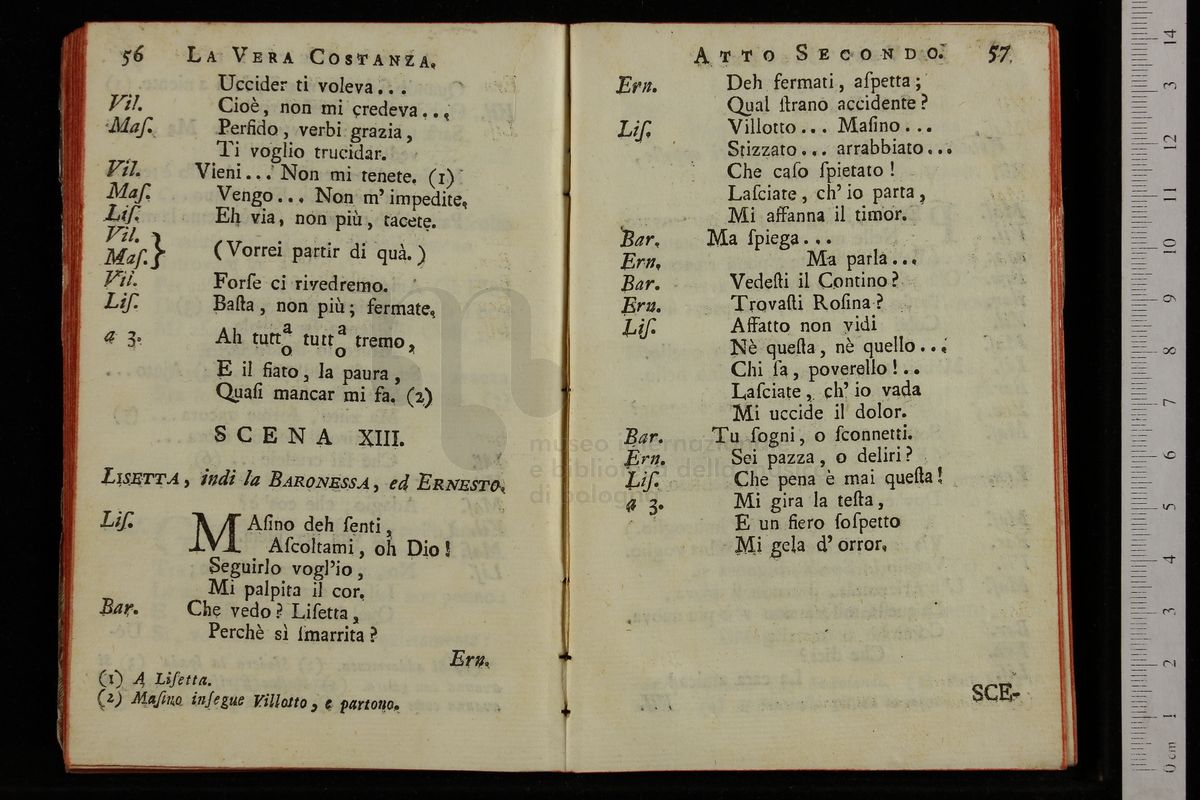 56 LA VERA COSTANZA.
Uccider ti voleva...
Vil. Cioè, non mi credeva...
Maſ. Perfido, verbi grazia,
Ti voglio trucidar.
Vil. Vieni... Non mi tenete. (1)
Maſ. Vengo... Non m'impedite.
Liſ. Eh via, non più, tacete.
Vil.
Maſ. } (Vorrei partir di quà.)
Vil. Forſe ci rivedremo.
Liſ. Baſta, non più; fermate.
a 3. Ah tutt a/o tutt a/o tremo,
E il fiato, la paura,
Quaſi mancar mi fa. (2)
SCENA XIII.
LISETTA, indi la BARONESSA, ed ERNESTO.
Liſ. MAſino deh ſenti,
Aſcoltami, oh Dio!
Seguirlo vogl'io,
Mi palpita il cor.
Bar. Che vedo? Liſetta,
Perchè sì ſmarrita?
Ern.
(1) A Liſetta.
(2) Maſino inſegue Villotto, e partono.
ATTO SECONDO. 57
Ern. Deh fermati, aſpetta;
Qual ſtrano accidente?
Liſ. Villotto... Maſino...
Stizzato... arrabbiato...
Che caſo ſpietato!
Laſciate, ch'io parta,
Mi affanna il timor.
Bar. Ma ſpiega...
Ern. Ma parla...
Bar. Vedeſti il Contino?
Ern. Trovaſti Roſina?
Liſ. Affatto non vidi
Nè queſta, nè quello...
Chi ſa, poverello!..
Laſciate, ch'io vada
Mi uccide il dolor.
Bar. Tu ſogni, o ſconnetti.
Ern. Sei pazza, o deliri?
Liſ. Che pena è mai queſta!
a 3. Mi gira la teſta,
E un fiero ſoſpetto
Mi gela d'orror.
SCE-
museo internazionale
e biblioteca della musica
di bologna
0 cm 1 2 3 4 5 6 7 8 9 10 11 12 13 14